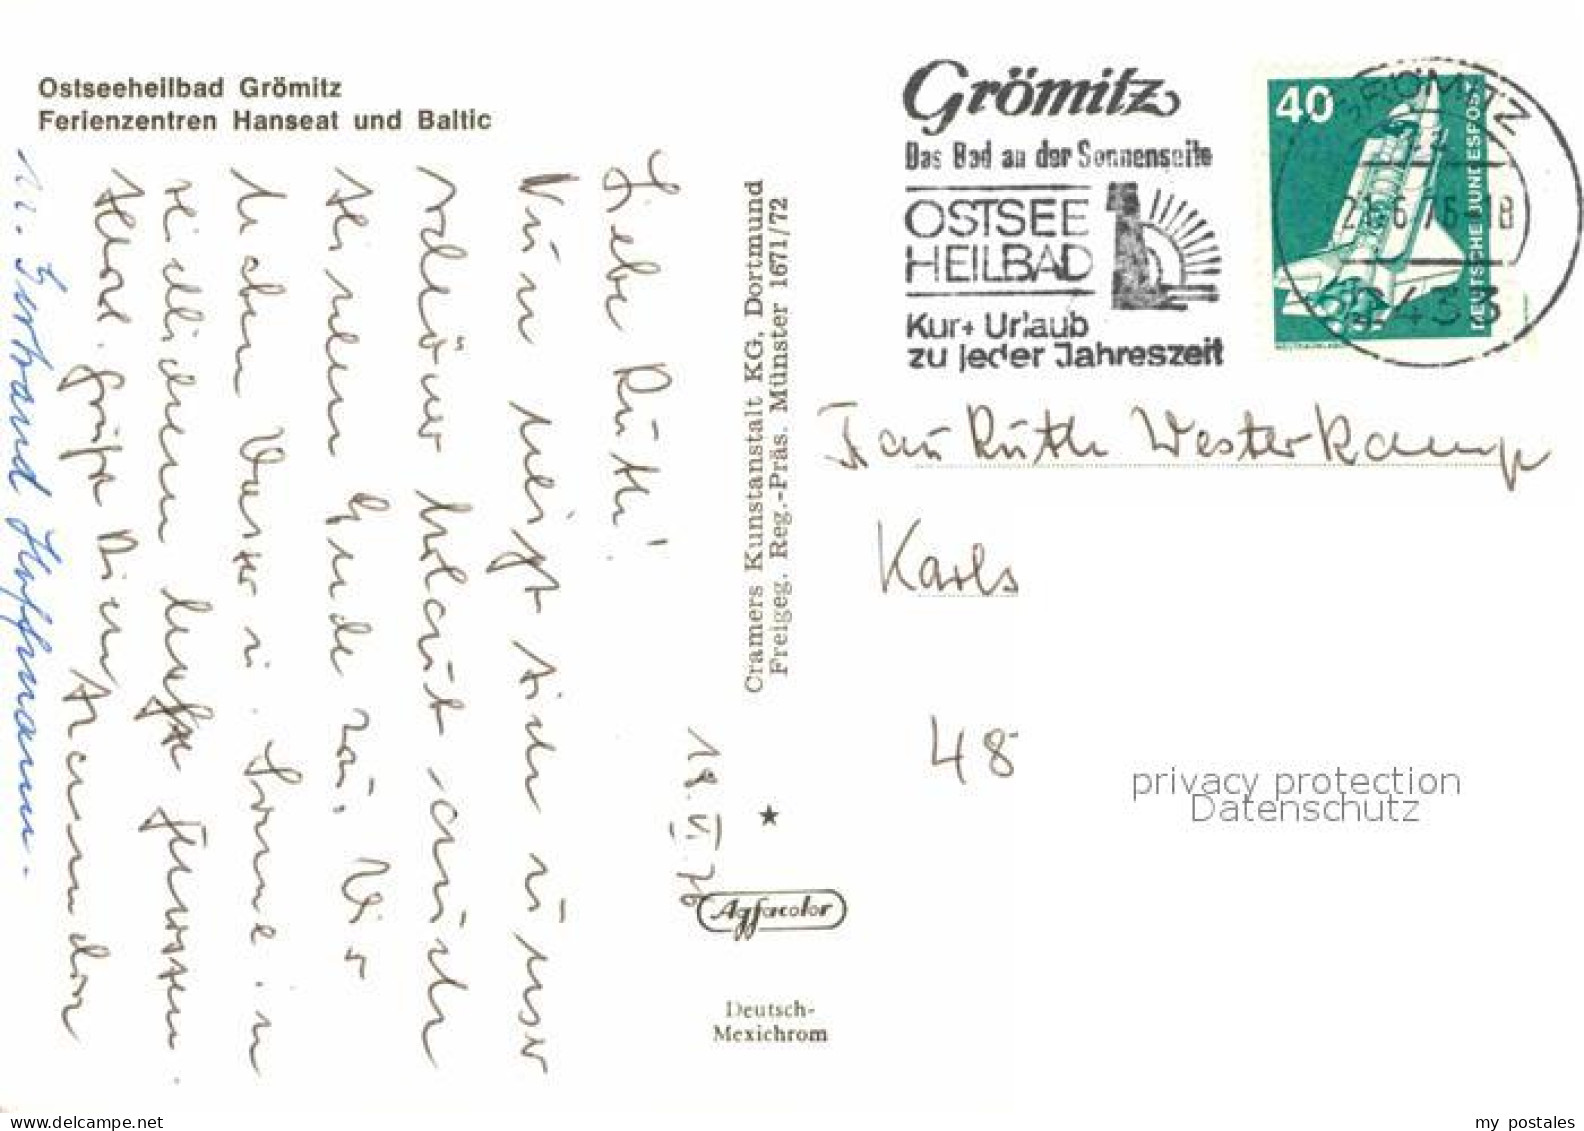 Ostseeheilbad Grömitz
Ferienzentren Hanseat und Baltic
Grömitz
Das Bad an der Sonnenseite
OSTSEE
HEILBAD
Kur+ Urlaub
zu jeder Jahreszeit
40
DEUTSCHE BUNDESPOST
GRÖMITZ
21.6.76-18
2433
18.VI.76
Liebe Ruth!
Nun neigt sich unser
Urlaub auch
seinem Ende zu. Wir
haben Wasser u. Sonne in
reichlichem genossen.
Herzl. Grüße Dein
u. Gertraud Hoffmann.
Cramers Kunstanstalt KG, Dortmund
Freigeg. Reg.-Präs. Münster 1671/72
Agfacolor
Deutsch-
Mexichrom
Frau Ruth Westerkamp
Karls
48
privacy protection
Datenschutz
www.delcampe.net
my postales